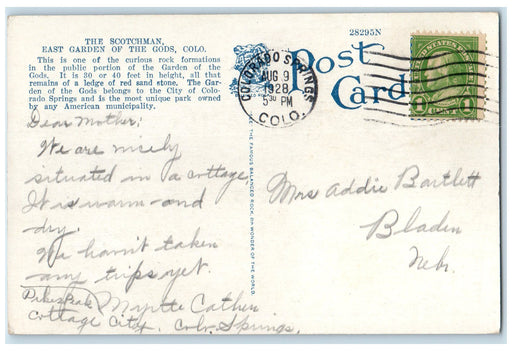 THE SCOTCHMAN,
EAST GARDEN OF THE GODS, COLO.
This is one of the curious rock formations
in the public portion of the Garden of the
Gods. It is 30 or 40 feet in height, all that
remains of a ledge of red sand stone. The Gar-
den of the Gods belongs to the City of Colo-
rado Springs and is the most unique park owned
by any American municipality.
28295N
Post
Card
COLORADO SPRINGS
AUG 9
1928
5 30 PM
COLO.
UNITED STATES POSTAGE
1 CENT 1
THE FAMOUS BALANCED ROCK, WONDER OF THE WORLD.
Dear Mother;
We are nicely
situated in a cottage
It is warm and
dry.
We havn't taken
any trips yet.
Myrtle Cather
Pikes Peak
Cottage City. Colo. Springs.
Mrs Addie Bartlett
Bladen
Nebr.